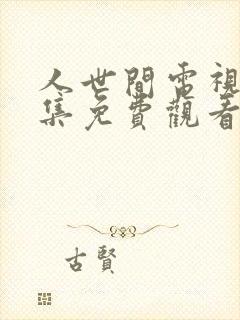 人世間電視
集免費觀看
古賢